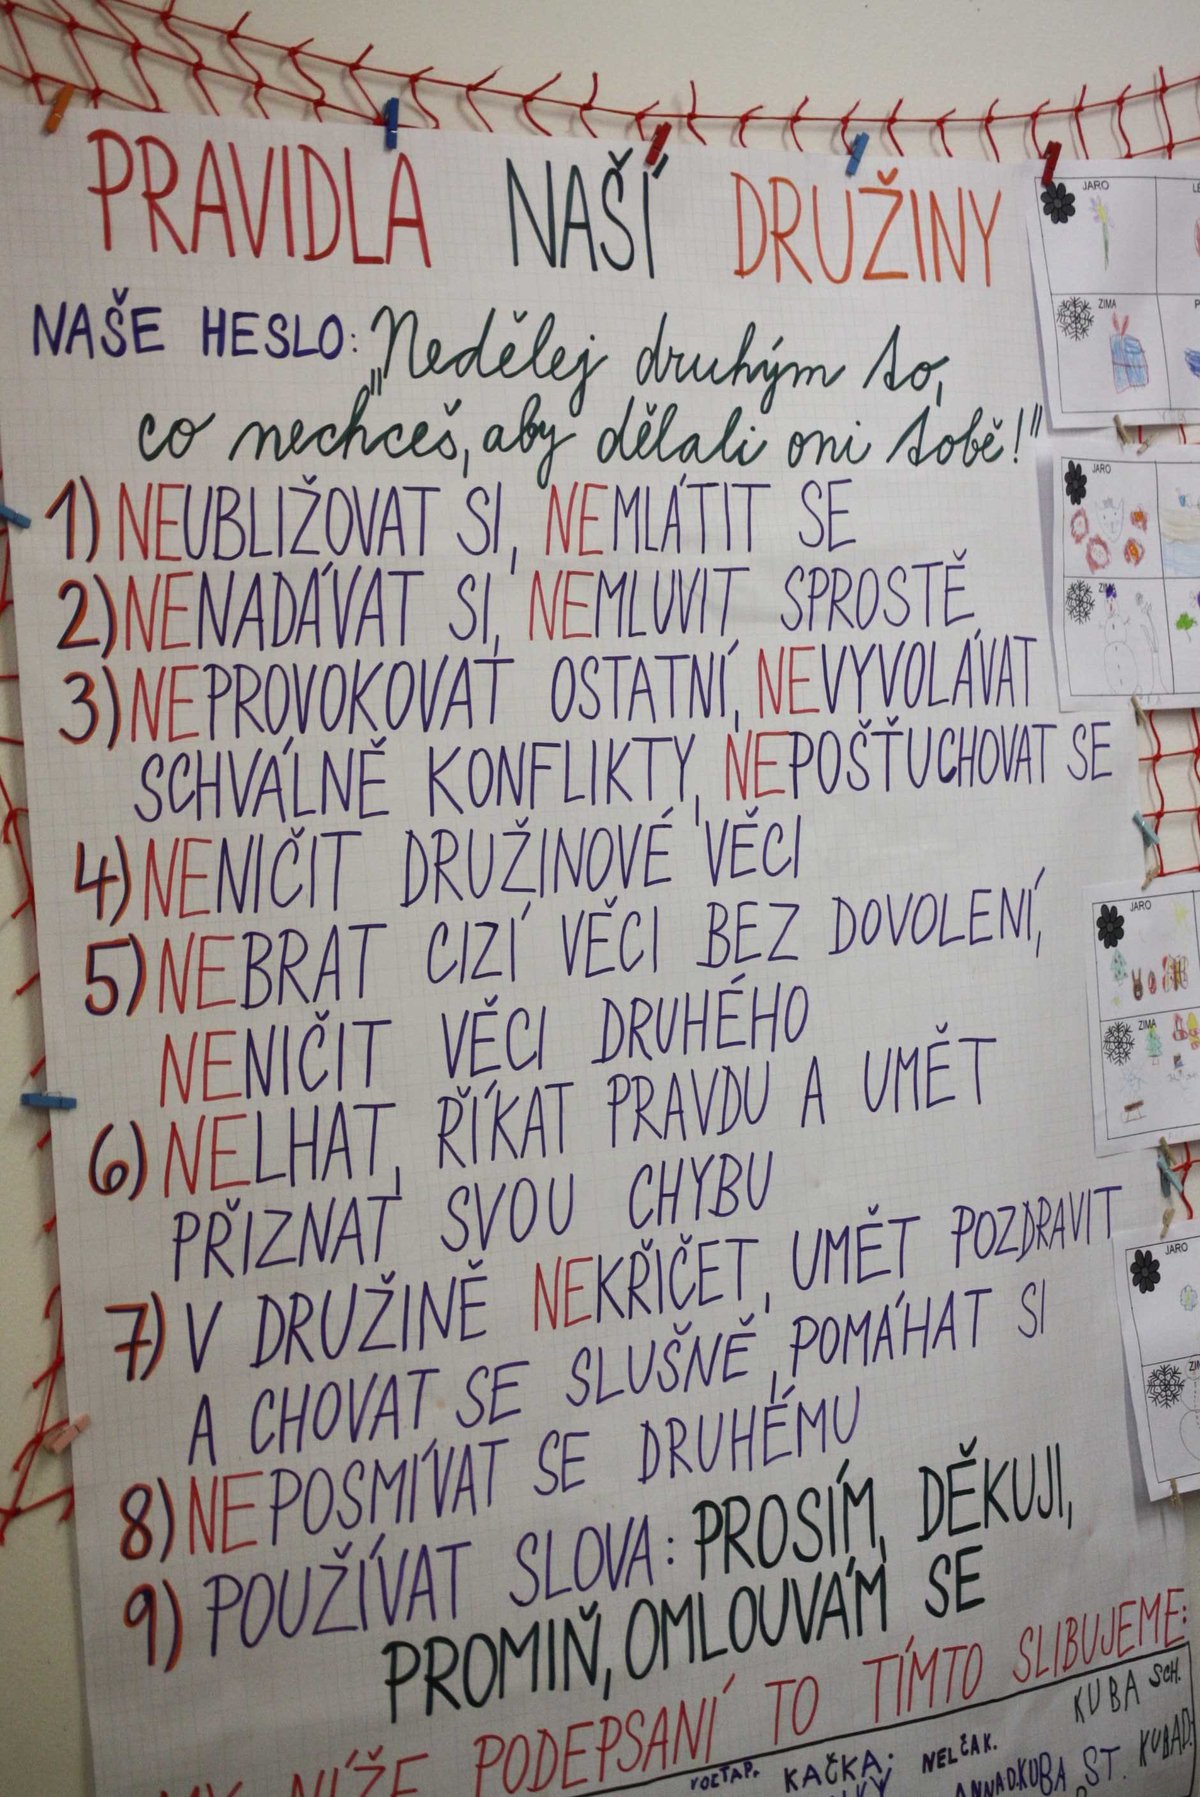 PRAVIDLA NAŠÍ DRUŽINY
NAŠE HESLO: „Nedělej druhým to,
co nechceš, aby dělali oni tobě!"
1) NEUBLIŽOVAT SI, NEMLÁTIT SE
2) NENADÁVAT SI, NEMLUVIT SPROSTĚ
3) NEPROVOKOVAT OSTATNÍ, NEVYVOLÁVAT
SCHVÁLNĚ KONFLIKTY, NEPOŠŤUCHOVAT SE
4) NENIČIT DRUŽINOVÉ VĚCI
5) NEBRAT CIZÍ VĚCI BEZ DOVOLENÍ,
NENIČIT VĚCI DRUHÉHO
6) NELHAT, ŘÍKAT PRAVDU A UMĚT
PŘIZNAT SVOU CHYBU
7) V DRUŽINĚ NEKŘIČET, UMĚT POZDRAVIT
A CHOVAT SE SLUŠNĚ, POMÁHAT SI
8) NEPOSMÍVAT SE DRUHÉMU
9) POUŽÍVAT SLOVA: PROSÍM, DĚKUJI,
PROMIŇ, OMLOUVÁM SE
MY NÍŽE PODEPSANÍ TO TÍMTO SLIBUJEME:
KUBA SCH.
KAČKA.
NELČA K.
ANNA D. KUBA ST. KUBA D.
JARO
ZIMA
JARO
ZIMA
JARO
ZIMA
JARO